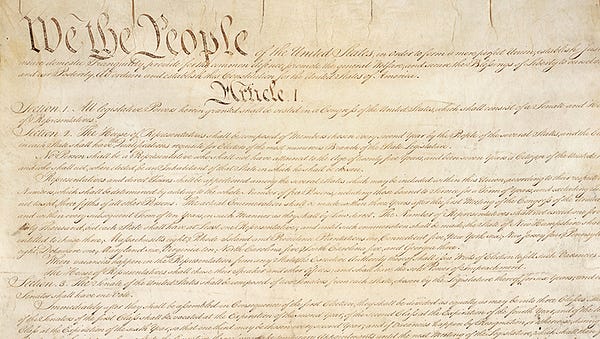 We the People of the United States, in Order to form a more perfect Union, establish Jus
insure domestic Tranquility, provide for the common defence, promote the general Welfare, and secure the Blessings of Liberty to ourselves
and our Posterity, do ordain and establish this Constitution for the United States of America.
Article. I.
Section. 1. All legislative Powers herein granted shall be vested in a Congress of the United States, which shall consist of a Senate and
of Representatives.
Section. 2. The House of Representatives shall be composed of Members chosen every second Year by the People of the several States, and the
in each State shall have Qualifications requisite for Electors of the most numerous Branch of the State Legislature.
No Person shall be a Representative who shall not have attained to the Age of twenty five Years, and been seven Years a Citizen of the United
and who shall not, when elected, be an Inhabitant of that State in which he shall be chosen.
Representatives and direct Taxes shall be apportioned among the several States which may be included within this Union, according to their respective
Numbers, which shall be determined by adding to the whole Number of free Persons, including those bound to Service for a Term of Years, and excluding Indians
not taxed, three fifths of all other Persons. The actual Enumeration shall be made within three Years after the first Meeting of the Congress of the United
and within every subsequent Term of ten Years, in such Manner as they shall by Law direct. The Number of Representatives shall not exceed one for
thirty Thousand, but each State shall have at Least one Representative; and until such enumeration shall be made, the State of New Hampshire shall
entitled to chuse three, Massachusetts eight, Rhode-Island and Providence Plantations one, Connecticut five, New-York six, New Jersey four, Pennsylvania
eight, Delaware one, Maryland six, Virginia ten, North Carolina five, South Carolina five, and Georgia three.
When vacancies happen in the Representation from any State, the Executive Authority thereof shall issue Writs of Election to fill such Vacancies.
The House of Representatives shall chuse their Speaker and other Officers; and shall have the sole Power of Impeachment.
Section. 3. The Senate of the United States shall be composed of two Senators from each State, chosen by the Legislature thereof, for six Years; and
Senator shall have one Vote.
Immediately after they shall be assembled in Consequence of the first Election, they shall be divided as equally as may be into three Classes. The
of the Senators of the first Class shall be vacated at the Expiration of the second Year, of the second Class at the Expiration of the fourth Year, and of
Class at the Expiration of the sixth Year, so that one third may be chosen every second Year; and if Vacancies happen by Resignation, or otherwise, during